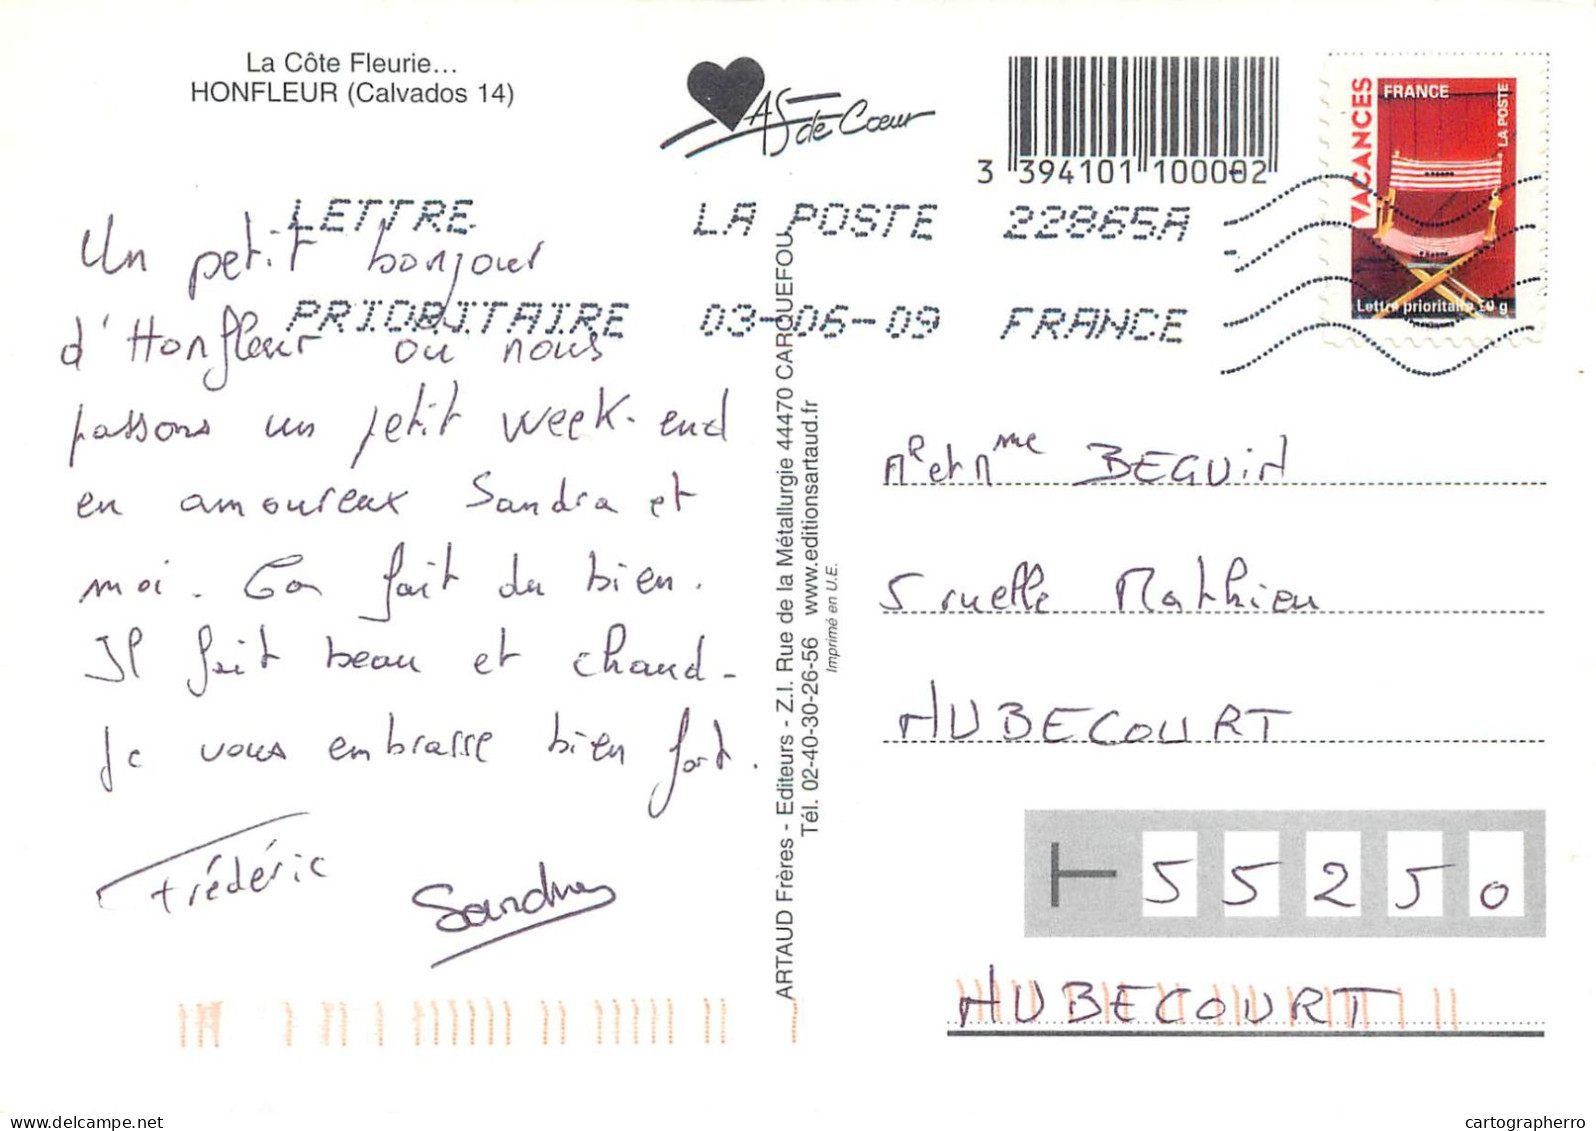 La Côte Fleurie...
HONFLEUR (Calvados 14)
AS de Cœur
3 394101 100002
VACANCES
FRANCE
LA POSTE
Lettre prioritaire 20 g
LETTRE
PRIORITAIRE
LA POSTE 22865A
03-06-09 FRANCE
Un petit bonjour
d'Honfleur ou nous
passons un petit week-end
en amoureux Sandra et
moi. Ca fait du bien.
Il fait beau et chaud.
Je vous embrasse bien fort.
Frédéric
Sandra
ARTAUD Frères - Editeurs - Z.I. Rue de la Métallurgie 44470 CARQUEFOU
Tél. 02-40-30-26-56 www.editionsartaud.fr
Imprimé en U.E.
Mr et Mme BEGUIN
5 ruelle Mathieu
NUBECOURT
55250
NUBECOURT
cartographerro